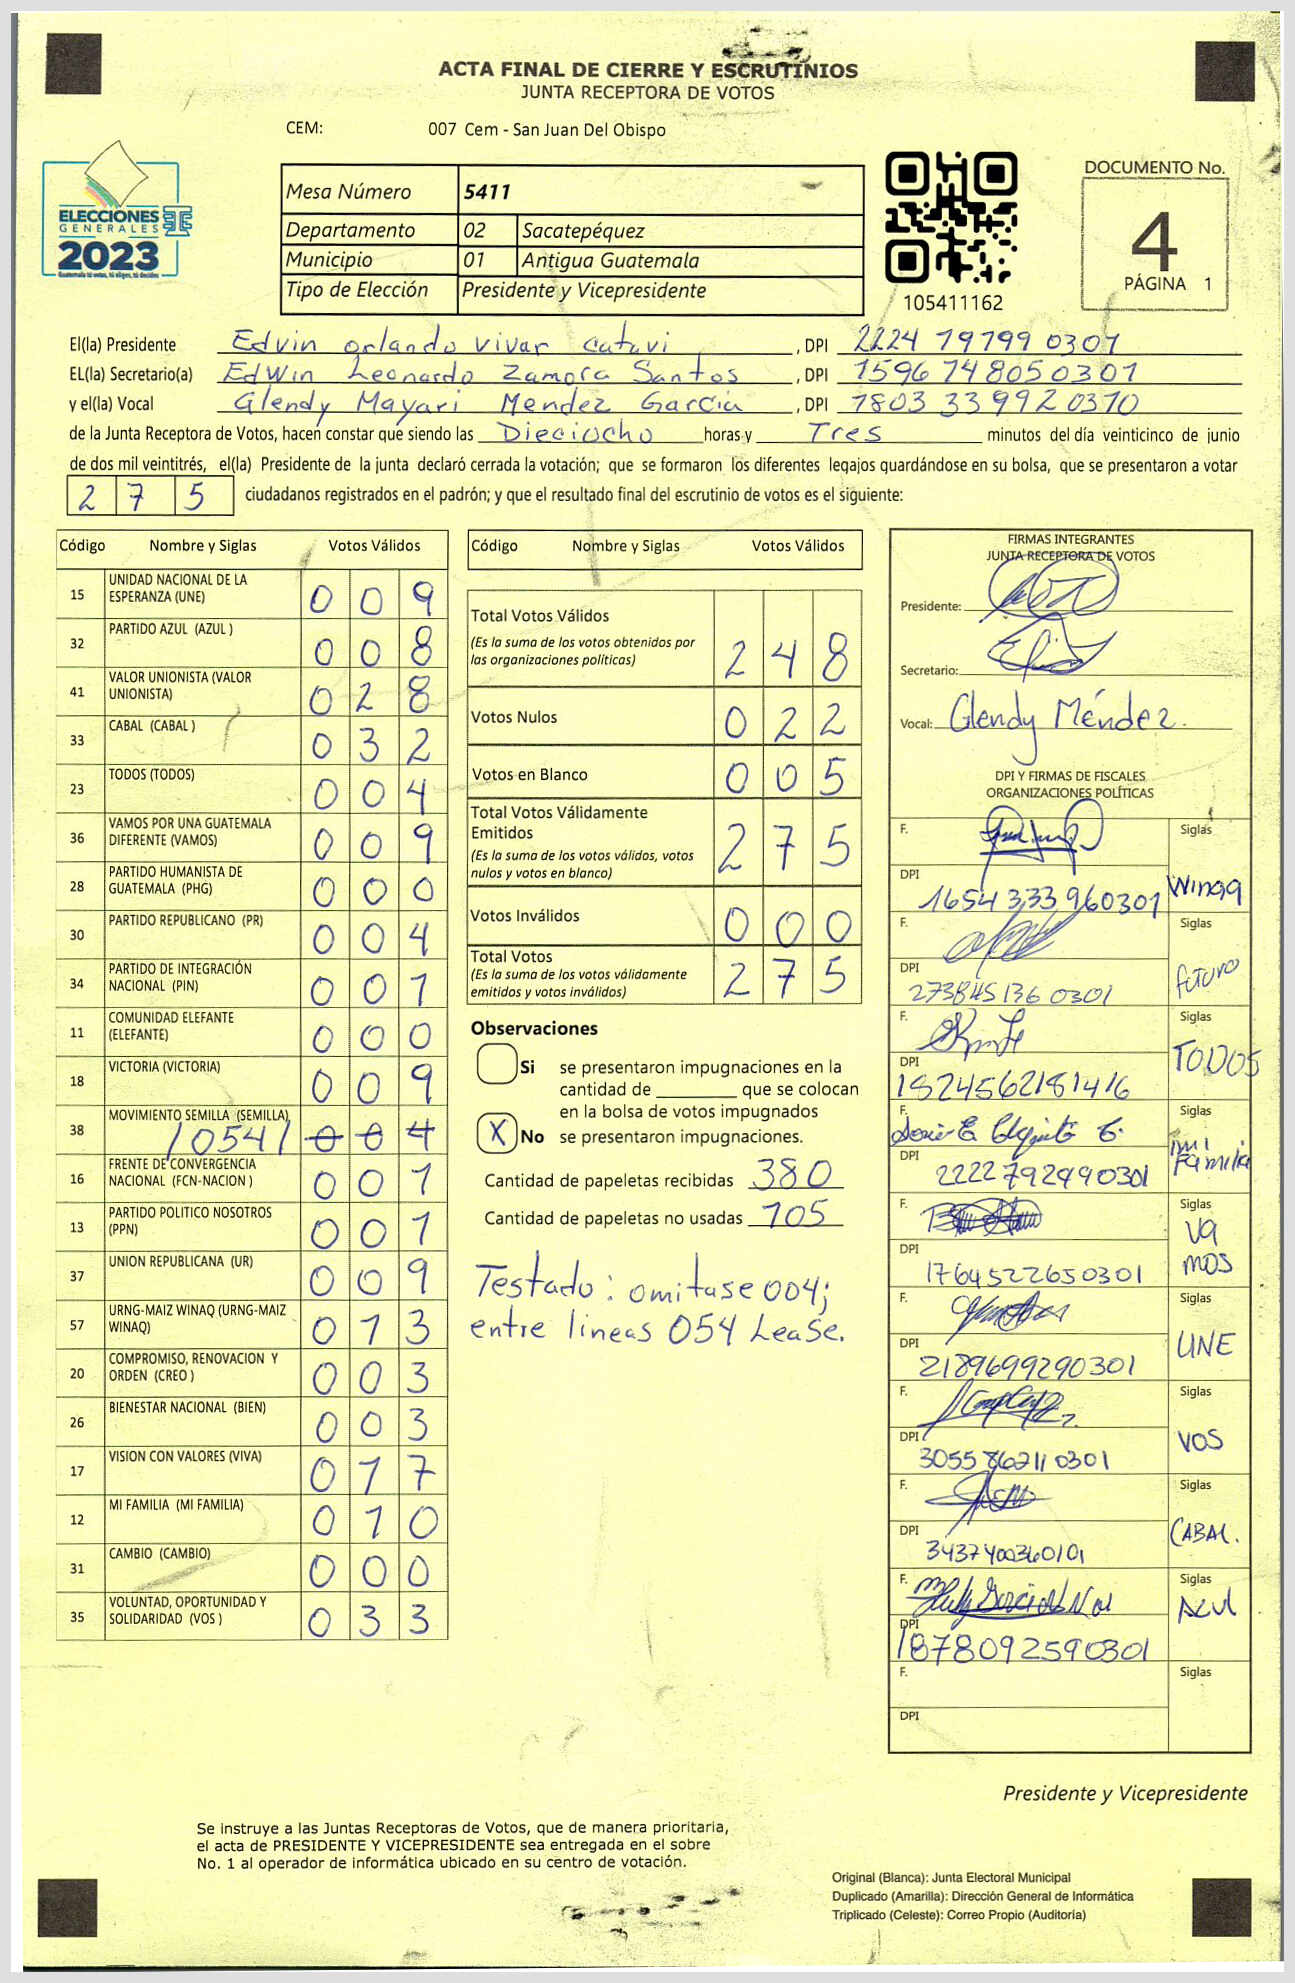 ACTA FINAL DE CIERRE Y ESCRUTINIOS
JUNTA RECEPTORA DE VOTOS
CEM: 007 Cem - San Juan Del Obispo
ELECCIONES
GENERALES
2023
Guatemala tú votas, tú eliges, tú decides
Mesa Número 5411
Departamento 02 Sacatepéquez
Municipio 01 Antigua Guatemala
Tipo de Elección Presidente y Vicepresidente
105411162
DOCUMENTO No.
4
PÁGINA 1
El(la) Presidente Edvin orlando vivar catuvi, DPI 2224 79799 0301
EL(la) Secretario(a) EdWin Leonardo Zamora Santos, DPI 1596 74805 0301
y el(la) Vocal Glendy Mayari Mendez García, DPI 7803 33992 0310
de la Junta Receptora de Votos, hacen constar que siendo las Dieciocho horas y Tres minutos del día veinticinco de junio
de dos mil veintitrés, el(la) Presidente de la junta declaró cerrada la votación; que se formaron los diferentes legajos guardándose en su bolsa, que se presentaron a votar
275 ciudadanos registrados en el padrón; y que el resultado final del escrutinio de votos es el siguiente:
Código Nombre y Siglas Votos Válidos
15 UNIDAD NACIONAL DE LA ESPERANZA (UNE) 009
32 PARTIDO AZUL (AZUL ) 008
41 VALOR UNIONISTA (VALOR UNIONISTA) 028
33 CABAL (CABAL ) 032
23 TODOS (TODOS) 004
36 VAMOS POR UNA GUATEMALA DIFERENTE (VAMOS) 009
28 PARTIDO HUMANISTA DE GUATEMALA (PHG) 000
30 PARTIDO REPUBLICANO (PR) 004
34 PARTIDO DE INTEGRACIÓN NACIONAL (PIN) 001
11 COMUNIDAD ELEFANTE (ELEFANTE) 000
18 VICTORIA (VICTORIA) 009
38 MOVIMIENTO SEMILLA (SEMILLA) /054/ 004
16 FRENTE DE CONVERGENCIA NACIONAL (FCN-NACION ) 001
13 PARTIDO POLITICO NOSOTROS (PPN) 001
37 UNION REPUBLICANA (UR) 009
57 URNG-MAIZ WINAQ (URNG-MAIZ WINAQ) 013
20 COMPROMISO, RENOVACION Y ORDEN (CREO ) 003
26 BIENESTAR NACIONAL (BIEN) 003
17 VISION CON VALORES (VIVA) 017
12 MI FAMILIA (MI FAMILIA) 010
31 CAMBIO (CAMBIO) 000
35 VOLUNTAD, OPORTUNIDAD Y SOLIDARIDAD (VOS ) 033
Código Nombre y Siglas Votos Válidos
Total Votos Válidos 248
(Es la suma de los votos obtenidos por
las organizaciones políticas)
Votos Nulos 022
Votos en Blanco 005
Total Votos Válidamente
Emitidos 275
(Es la suma de los votos válidos, votos
nulos y votos en blanco)
Votos Inválidos 000
Total Votos 275
(Es la suma de los votos válidamente
emitidos y votos inválidos)
Observaciones
Si se presentaron impugnaciones en la
cantidad de ________ que se colocan
en la bolsa de votos impugnados
X No se presentaron impugnaciones.
Cantidad de papeletas recibidas 380
Cantidad de papeletas no usadas 105
Testado: omitase 004;
entre lineas 054 Lease.
FIRMAS INTEGRANTES
JUNTA RECEPTORA DE VOTOS
Presidente:
Secretario:
Vocal: Glendy Méndez.
DPI Y FIRMAS DE FISCALES
ORGANIZACIONES POLÍTICAS
F. Siglas
DPI 1654 333 960301 Winaq
F. Siglas
DPI 273845136 0301 futuro
F. Siglas
DPI 1824562181416 TODOS
F. Siglas
DPI 2222792990301 mi Familia
F. Siglas
DPI 1764522650301 VAMOS
F. Siglas
DPI 2189699290301 UNE
F. Siglas
DPI 3055 862110301 VOS
F. Siglas
DPI 3437400360101 CABAL.
F. Siglas
DPI 1878092590301 AZUL
F. Siglas
DPI
Presidente y Vicepresidente
Se instruye a las Juntas Receptoras de Votos, que de manera prioritaria,
el acta de PRESIDENTE Y VICEPRESIDENTE sea entregada en el sobre
No. 1 al operador de informática ubicado en su centro de votación.
Original (Blanca): Junta Electoral Municipal
Duplicado (Amarilla): Dirección General de Informática
Triplicado (Celeste): Correo Propio (Auditoría)